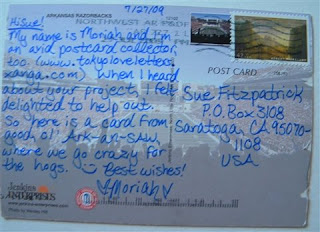 7/27/09
ARKANSAS RAZORBACKS
NORTHWEST AR P&DF
Hi Sue!
My name is Moriah and I'm
an avid postcard collector,
too. (www.tokyoloveletters.
xanga.com) When I heard
about your project, I felt
delighted to help out.
So here is a card from
good ol' Ark-an-saw,
where we go crazy for
the hogs. Best wishes!
Moriah
POST CARD
Sue Fitzpatrick
P.O. Box 3108
Saratoga, CA 95070-
1108
USA
Jenkins
ENTERPRISES